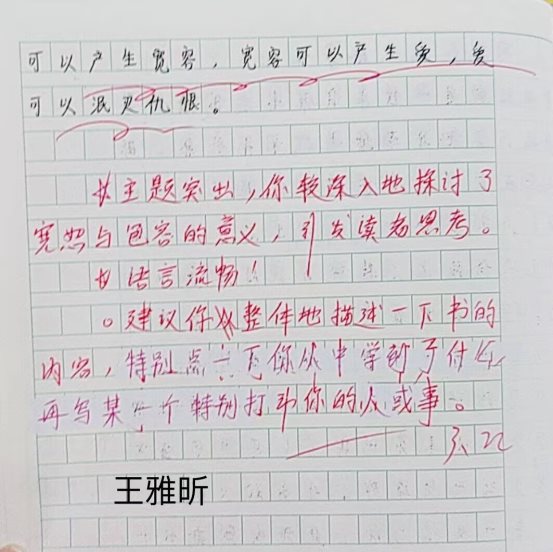 可以产生宽容，宽容可以产生爱，爱
可以泯灭仇恨。
☆主题突出，你较深入地探讨了
宽恕与包容的意义，引发读者思考。
☆语言流畅！
。建议你整体地描述一下书的
内容，特别点一下你从中学到了什么
再写某一个特别打动你的人或事。
王雅昕